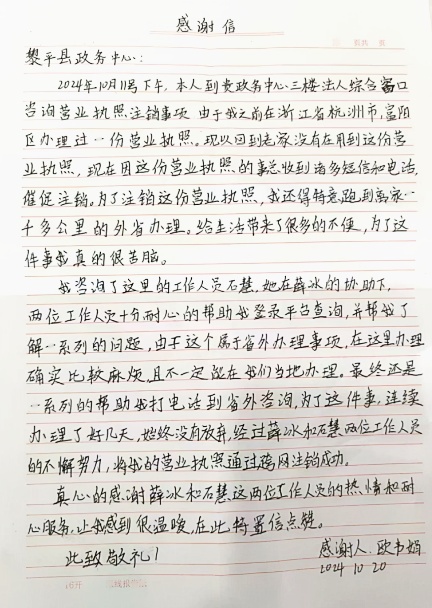 感谢信
黎平县政务中心:
2024年10月11号下午,本人到贵政务中心三楼法人综合窗口
咨询营业执照注销事项 由于我之前在浙江省杭州市,富阳
区办理过一份营业执照。现以回到老家没有在用到这份营
业执照,现在因这份营业执照的事总收到诸多短信和电话,
催促注销。为了注销这份营业执照,我还得特意跑到离家一
千多公里的外省办理。给生活带来了很多的不便,为了这
件事我真的很苦脑。
我咨询了这里的工作人员石慧,她在薛冰的协助下,
两位工作人员十分耐心的帮助我登录平台查询,并帮我了
解一系列的问题,由于这个属于省外办理事项,在这里办理
确实比较麻烦,且不一定能在我们当地办理。最终还是
一系列的帮助我打电话到省外咨询,为了这件事,连续
办理了好几天,始终没有放弃,经过薛冰和石慧两位工作人员
的不懈努力,将我的营业执照通过跨网注销成功。
真心的感谢薛冰和石慧这两位工作人员的热情和耐
心服务,让我感到很温暖,在此特置信点赞。
此致敬礼!
感谢人:欧书娟
2024 10 20